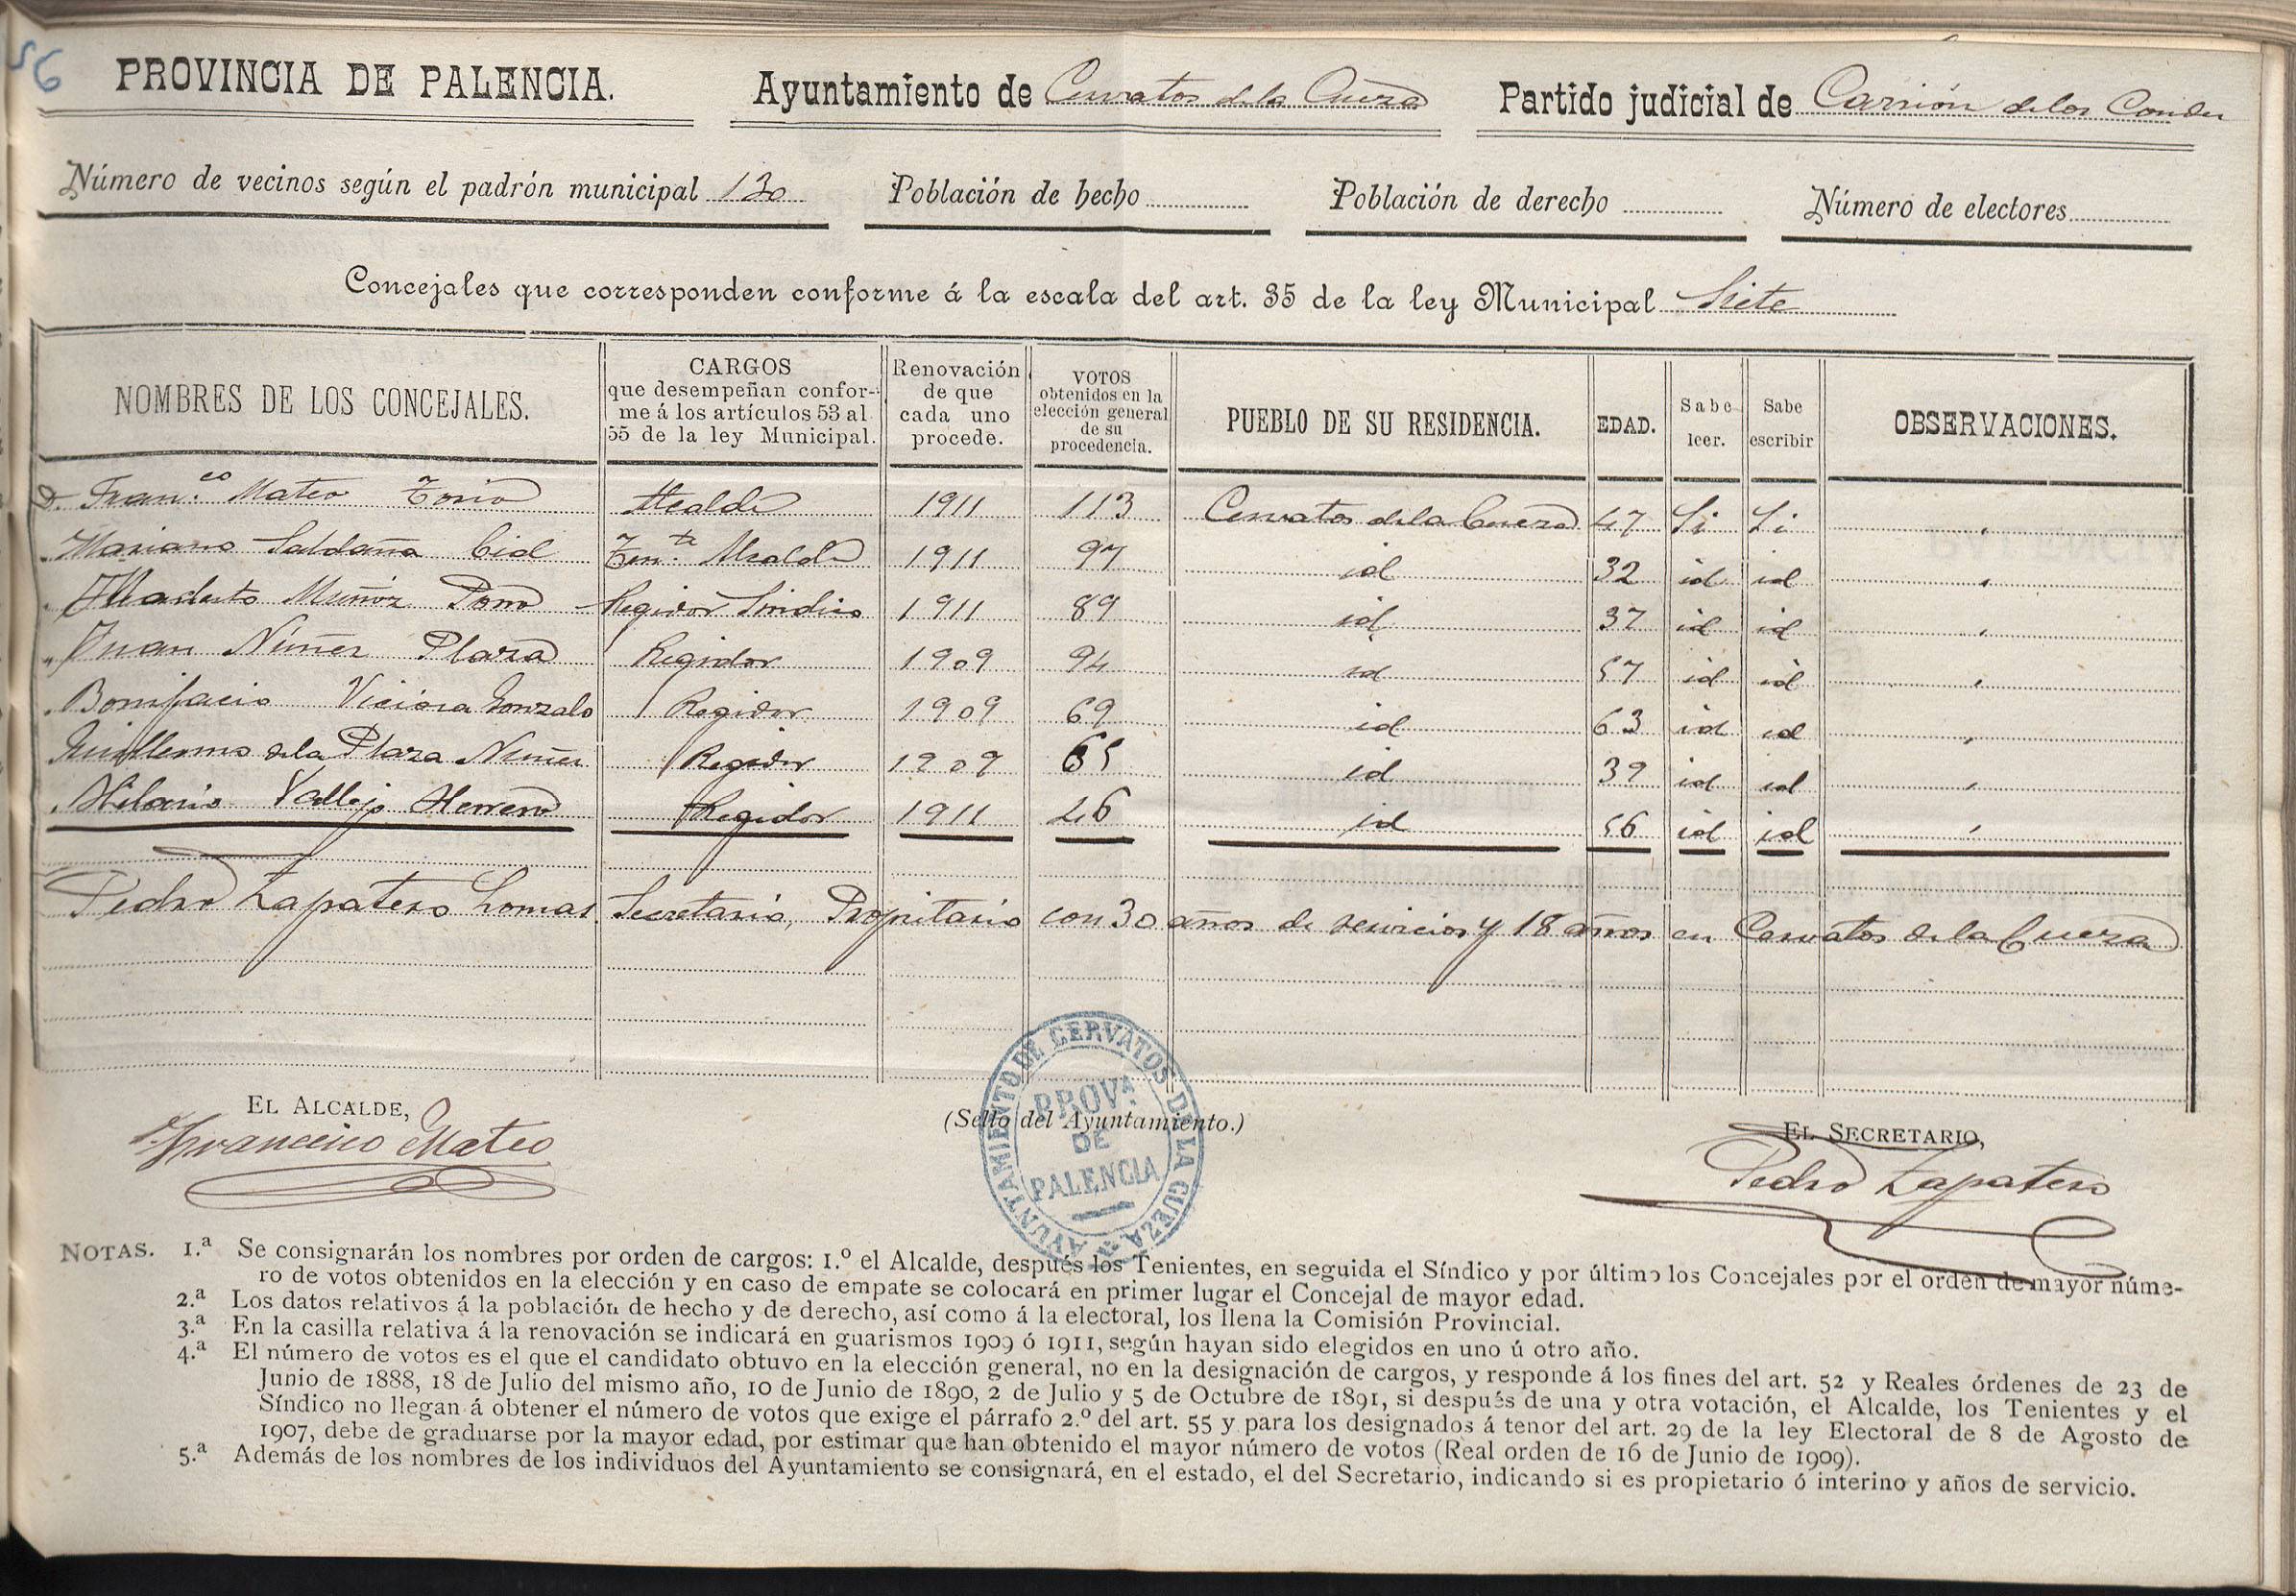 56
PROVINCIA DE PALENCIA. Ayuntamiento de Cervatos de la Cueza Partido judicial de Carrión de los Condes
Número de vecinos según el padrón municipal 130 Población de hecho Población de derecho Número de electores
Concejales que corresponden conforme á la escala del art. 35 de la ley Municipal Siete
NOMBRES DE LOS CONCEJALES.
CARGOS
que desempeñan confor-
me á los artículos 53 al
55 de la ley Municipal.
Renovación
de que
cada uno
procede.
VOTOS
obtenidos en la
elección general
de su
procedencia.
PUEBLO DE SU RESIDENCIA.
EDAD.
Sabe
leer.
Sabe
escribir
OBSERVACIONES.
D. Fran.co Mateo Torio Alcalde 1911 113 Cervatos de la Cueza 47 Si Si "
" Mariano Saldaña Cid Ten.te Alcalde 1911 97 id 32 id id "
" Modesto Muñoz Regidor Sindico 1911 89 id 37 id id "
" Juan Núñez Plaza Regidor 1909 94 id 57 id id "
" Bonifacio Viciosa Gonzalo Regidor 1909 69 id 63 id id "
Guillermo de la Plaza Nuñez Regidor 1909 65 id 39 id id "
" Hilario Vallejo Herrero Regidor 1911 46 id 56 id id "
Pedro Zapatero Lomas Secretario, Propietario con 30 años de servicios y 18 años en Cervatos de la Cueza
EL ALCALDE,
Francisco Mateo
(Sello del Ayuntamiento.)
AYUNTAMIENTO DE CERVATOS DE LA CUEZA
PROVA
DE
PALENCIA
EL SECRETARIO,
Pedro Zapatero
NOTAS. 1.ª Se consignarán los nombres por orden de cargos: 1.º el Alcalde, después los Tenientes, en seguida el Síndico y por último los Concejales por el orden de mayor núme-
ro de votos obtenidos en la elección y en caso de empate se colocará en primer lugar el Concejal de mayor edad.
2.ª Los datos relativos á la población de hecho y de derecho, así como á la electoral, los llena la Comisión Provincial.
3.ª En la casilla relativa á la renovación se indicará en guarismos 1909 ó 1911, según hayan sido elegidos en uno ú otro año.
4.ª El número de votos es el que el candidato obtuvo en la elección general, no en la designación de cargos, y responde á los fines del art. 52 y Reales órdenes de 23 de
Junio de 1888, 18 de Julio del mismo año, 10 de Junio de 1890, 2 de Julio y 5 de Octubre de 1891, si después de una y otra votación, el Alcalde, los Tenientes y el
Síndico no llegan á obtener el número de votos que exige el párrafo 2.º del art. 55 y para los designados á tenor del art. 29 de la ley Electoral de 8 de Agosto de
1907, debe de graduarse por la mayor edad, por estimar que han obtenido el mayor número de votos (Real orden de 16 de Junio de 1909).
5.ª Además de los nombres de los individuos del Ayuntamiento se consignará, en el estado, el del Secretario, indicando si es propietario ó interino y años de servicio.